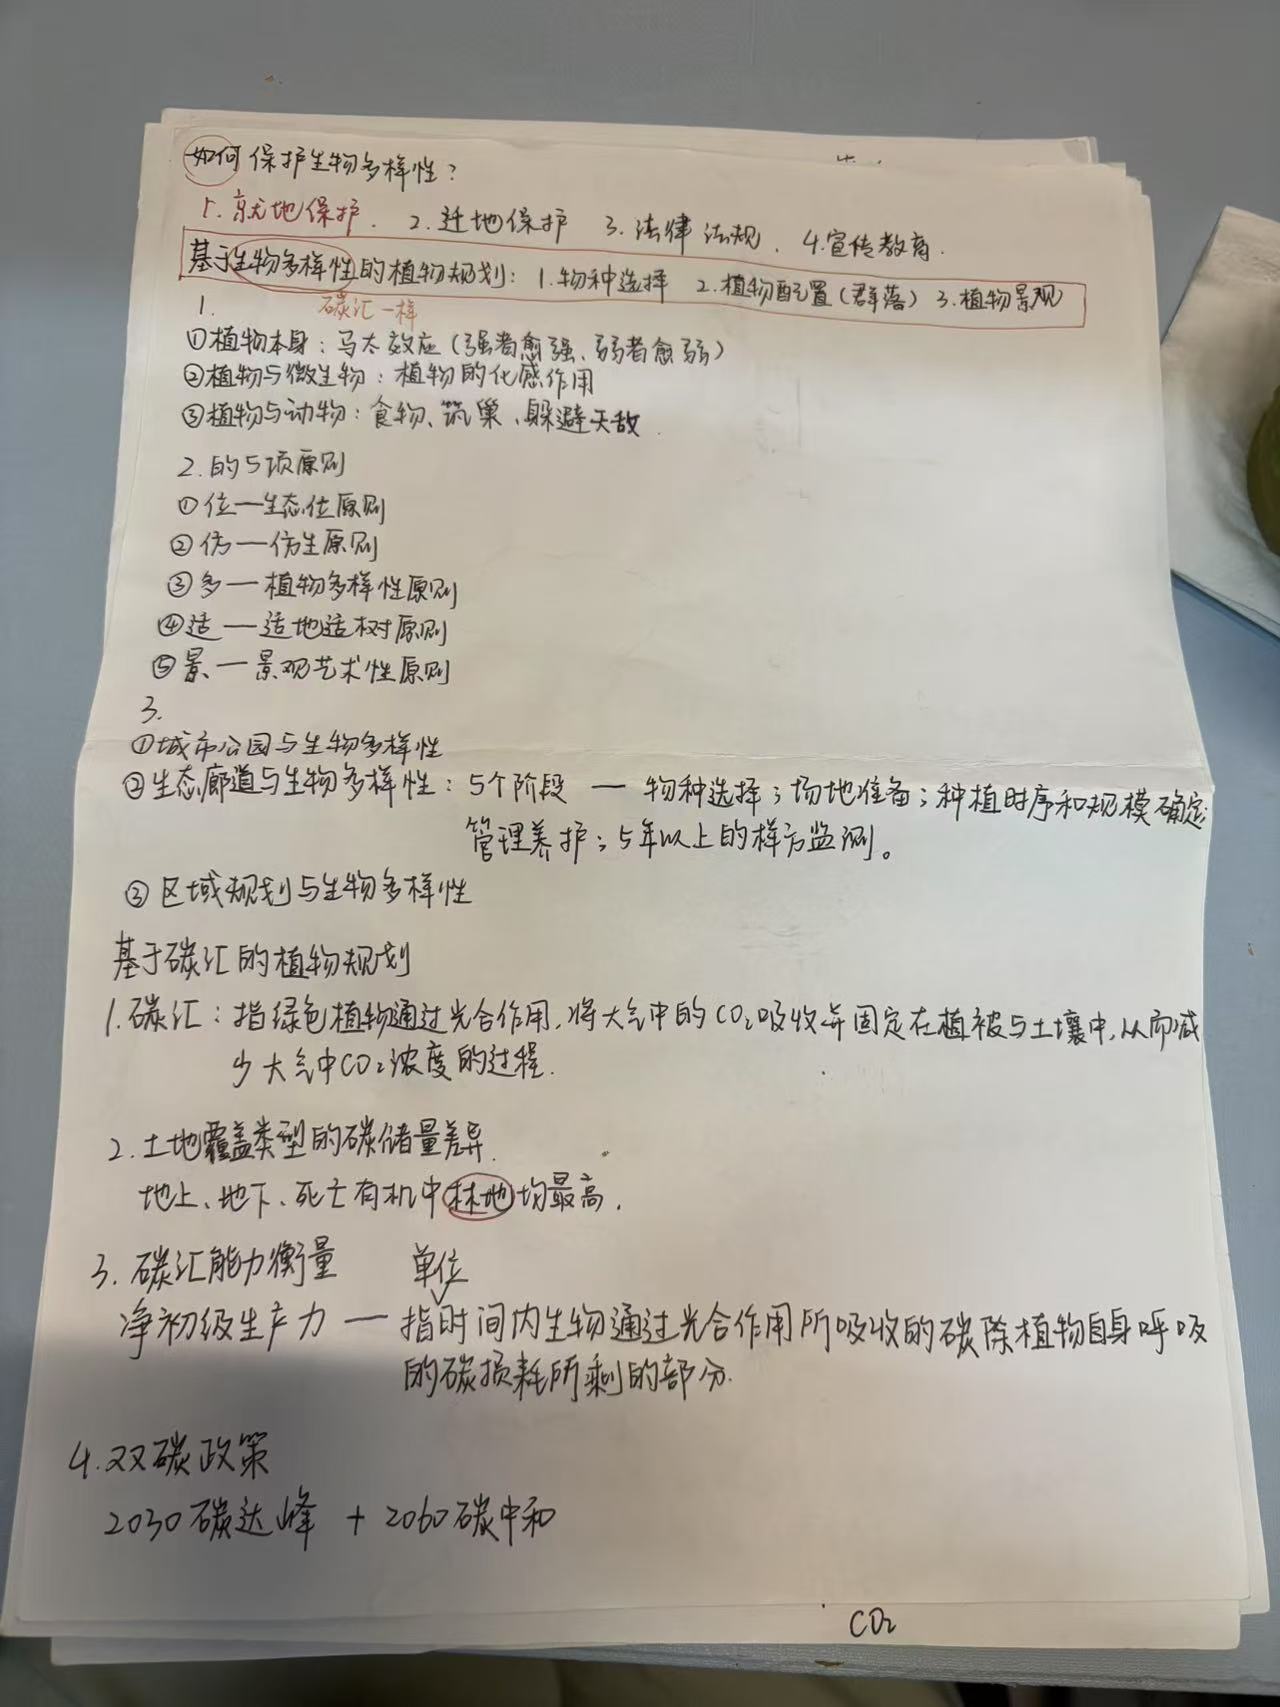 如何保护生物多样性?
1.就地保护. 2.迁地保护 3.法律法规. 4.宣传教育.
基于生物多样性的植物规划: 1.物种选择 2.植物配置(群落) 3.植物景观
1. 碳汇一样
①植物本身: 马太效应(强者愈强、弱者愈弱)
②植物与微生物: 植物的化感作用
③植物与动物: 食物、筑巢、躲避天敌.
2.的5项原则
①位—生态位原则
②仿—仿生原则
③多—植物多样性原则
④适—适地适树原则
⑤景—景观艺术性原则
3.
①城市公园与生物多样性
②生态廊道与生物多样性: 5个阶段 — 物种选择; 场地准备; 种植时序和规模确定;
管理养护; 5年以上的样方监测。
③区域规划与生物多样性
基于碳汇的植物规划
1.碳汇: 指绿色植物通过光合作用,将大气中的CO₂吸收并固定在植被与土壤中,从而减
少大气中CO₂浓度的过程.
2.土地覆盖类型的碳储量差异.
地上、地下、死亡有机中林地均最高.
3.碳汇能力衡量 单位
净初级生产力 — 指时间内生物通过光合作用所吸收的碳除植物自身呼吸
的碳损耗所剩的部分.
4.双碳政策
2030碳达峰 + 2060碳中和
CO₂